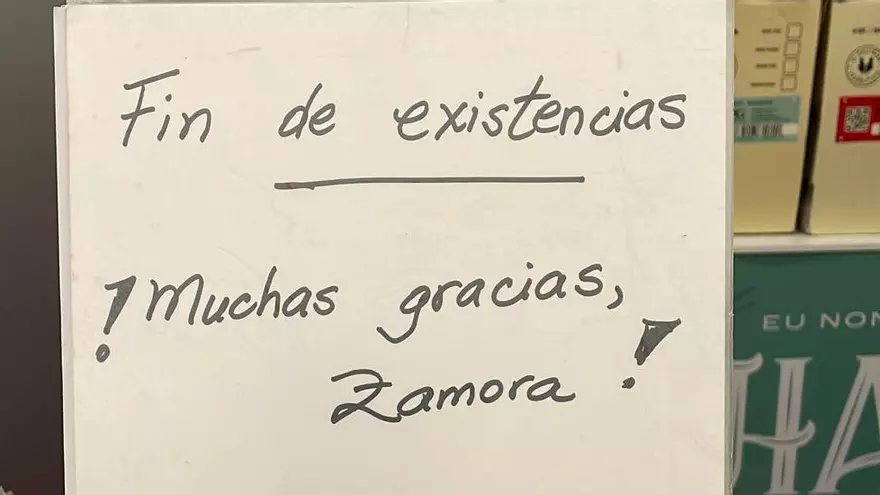 Fin de existencias
!Muchas gracias,
Zamora!
EU NON
HA